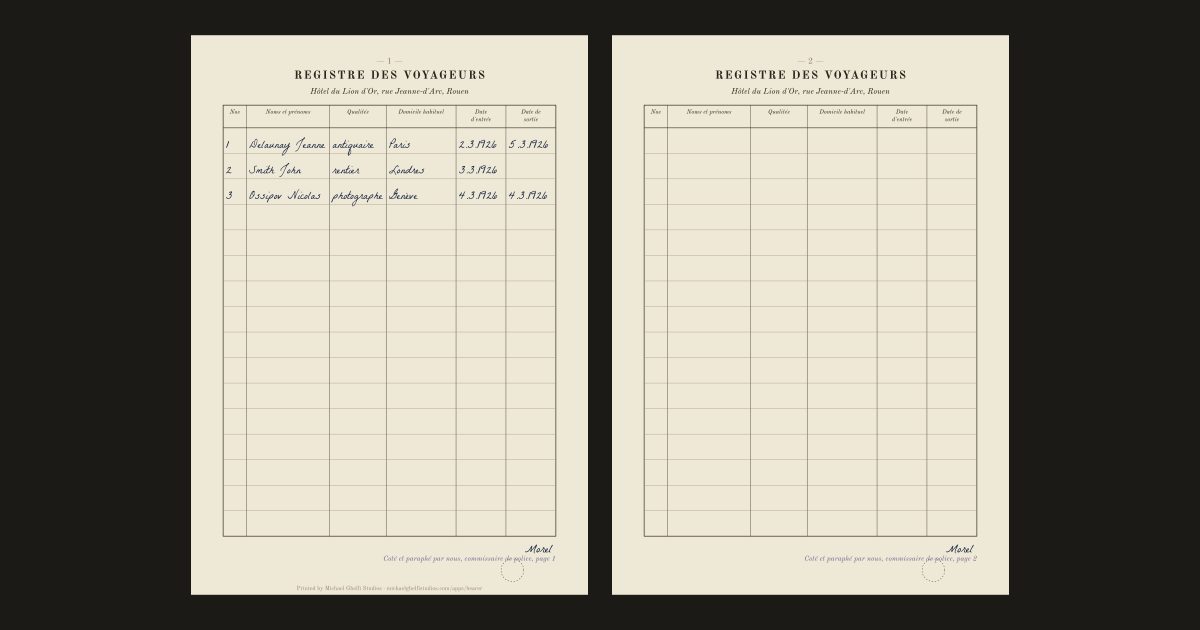 — 1 —
REGISTRE DES VOYAGEURS
Hôtel du Lion d'Or, rue Jeanne-d'Arc, Rouen
Nos Noms et prénoms Qualités Domicile habituel Date d'entrée Date de sortie
1 Delaunay Jeanne antiquaire Paris 2.3.1926 5.3.1926
2 Smith John rentier Londres 3.3.1926
3 Ossipov Nicolas photographe Genève 4.3.1926 4.3.1926
Morel
Coté et paraphé par nous, commissaire de police, page 1
Printed by Michael Ghelfi Studios · michaelghelfistudios.com/apps/bearer
— 2 —
REGISTRE DES VOYAGEURS
Hôtel du Lion d'Or, rue Jeanne-d'Arc, Rouen
Nos Noms et prénoms Qualités Domicile habituel Date d'entrée Date de sortie
Morel
Coté et paraphé par nous, commissaire de police, page 2